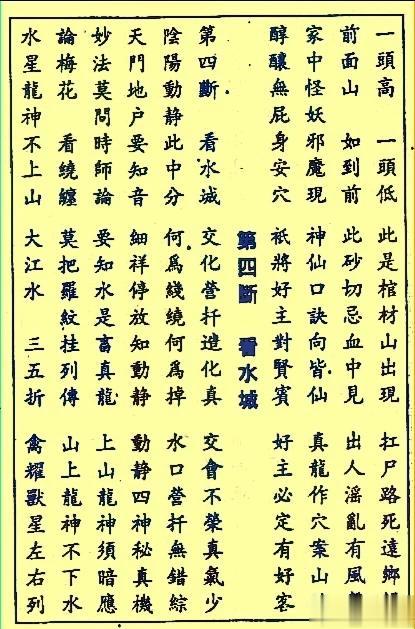 一頭高 一頭低 此是棺材山出現 扛尸路死遠鄉
前面山 如到前 此砂切忌血中見 出人淫亂有風
家中怪妖邪魔現 神仙口訣向皆仙 真龍作穴案山
醇釀無屁身安穴 祇將好主對賢賓 好主必定有好客
第四斷 看水城
第四斷 看水城 交化營扦造化真 交會不榮真氣少
陰陽動静此中分 何為綫繞何為掉 水口營扦無錯綜
天門地户要知音 細祥停放知動静 動静四神秘真機
妙法莫問時師論 要知水是畜真龍 上山龍神須暗應
論梅花 看繞纏 莫把羅紋挂列傳 山上龍神不下水
水星龍神不上山 大江水 三五折 禽耀獸星左右列